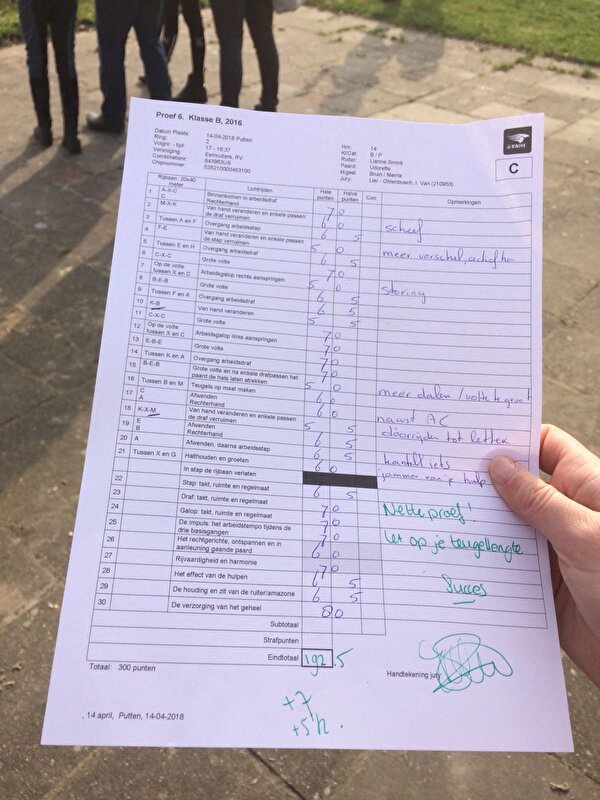 Proef 6. Klasse B, 2016
Datum Plaats: 14-04-2018 Putten
Ring: 2
Volgnr. - tijd: 17 - 16:37
Vereniging: Eemruiters, RV.
Combinatienr: 643963US
Chipnummer: 528210000483100
Hnr: 14
Kl/Cat: B / P
Ruiter: Lianne Smink
Paard: Udorette
Kl/gesl: Bruin / Merrie
Jury: Lier - Ottenbusch, I. Van (210963)
KNHS
C
Rijbaan: 20x40 meter Lichtrijden Hele punten Halve punten Corr. Opmerkingen
1 A-X-C C Binnenkomen in arbeidsdraf Rechterhand 7 0
2 M-X-K Van hand veranderen en enkele passen de draf verruimen 6 0 scheef
3 Tussen A en F Overgang arbeidsstap 6 5
4 F-E Van hand veranderen en enkele passen de stap verruimen 5 0 meer verschil,
5 Tussen E en H Overgang arbeidsdraf 6 5
6 C-X-C Grote volte 7 0
7 Op de volte tussen X en C Arbeidsgalop rechts aanspringen 5 0 storing
8 B-E-B Grote volte 6 5
9 Tussen F en A Overgang arbeidsdraf 6 5
10 K-B Van hand veranderen 5 5
11 C-X-C Grote volte 7 0
12 Op de volte tussen X en C Arbeidsgalop links aanspringen 7 0
13 E-B-E Grote volte 7 0
14 Tussen K en A Overgang arbeidsdraf 7 0
15 B-E-B Grote volte en na enkele drafpassen het paard de hals laten strekken 5 0 meer dalen / volte te groot
16 Tussen B en M Teugels op maat maken 6 0
17 C A Afwenden Rechterhand 6 0 naast AC
18 K-X-M Van hand veranderen en enkele passen de draf verruimen 5 5 doorrijden tot letter
19 E B Afwenden Rechterhand 6 5
20 A Afwenden, daarna arbeidsstap 6 5 kantelt iets
21 Tussen X en G Halthouden en groeten 6 0 jammer van je hulp
In stap de rijbaan verlaten
22 Stap: takt, ruimte en regelmaat 6 5
23 Draf: takt, ruimte en regelmaat 7 0 Nette proef!
24 Galop: takt, ruimte en regelmaat 7 0
25 De impuls: het arbeidstempo tijdens de drie basisgangen 7 0 Let op je teugellengte
26 Het rechtgerichte, ontspannen en in aanleuning gaande paard 6 0
27 Rijvaardigheid en harmonie 7 0
28 Het effect van de hulpen 6 5 Succes
29 De houding en zit van de ruiter/amazone 6 5
30 De verzorging van het geheel 8 0
Subtotaal
Strafpunten
Eindtotaal 192.5
Totaal: 300 punten
Handtekening jury:
+7
, 14 april, Putten, 14-04-2018